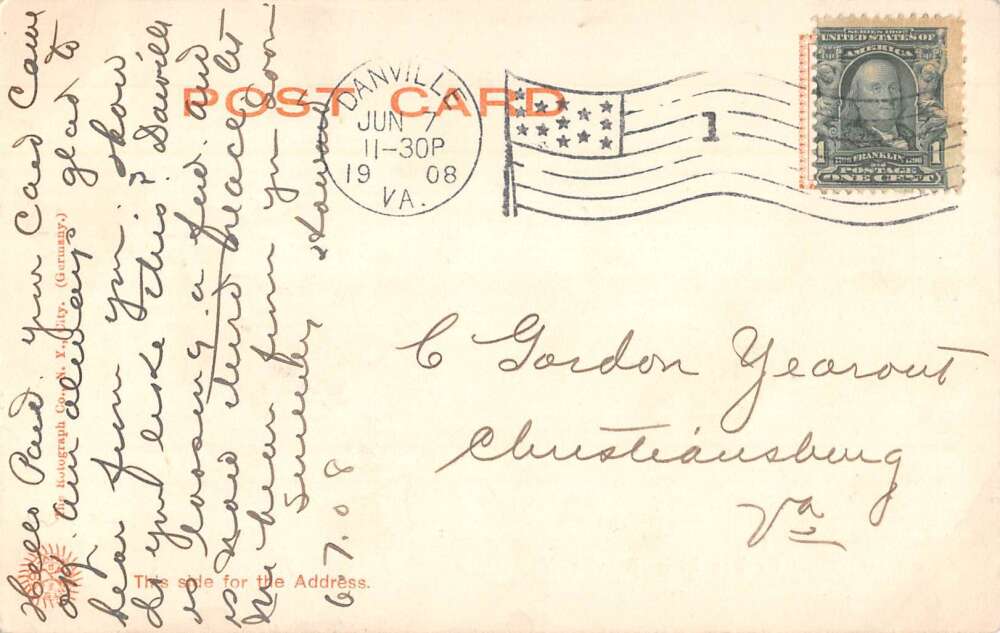 POST CARD
DANVILLE
JUN 7
11-30P
19 08
VA.
1
SERIES 1902
UNITED STATES OF
AMERICA
1 FRANKLIN 1
POSTAGE
ONE CENT
C Gordon Yearout
Christiansburg
Va
Hello Paul. your Card Came
am always glad to
hear from you. ? show
do you like this? Danville
is loosing a feud. and
is now third place let
me hear from you soon
Sincerely Howard
6 7. 08
The Rotograph Co., N. Y., City. (Germany.)
This side for the Address.